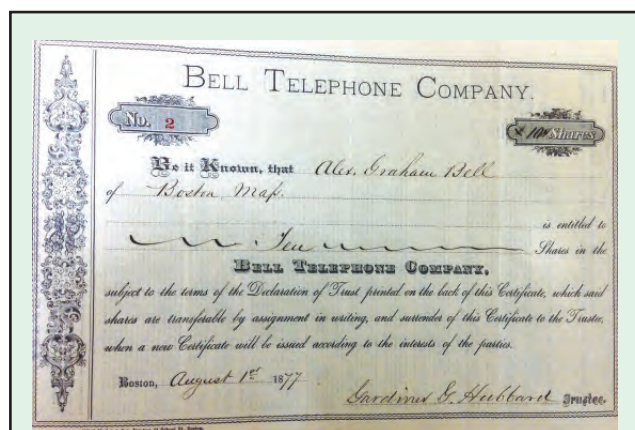 BELL TELEPHONE COMPANY.
No. 2
10 Shares
Be it Known, that Alex. Graham Bell
of Boston Mass.
is entitled to
Ten Shares in the
BELL TELEPHONE COMPANY,
subject to the terms of the Declaration of Trust printed on the back of this Certificate, which said
shares are transferable by assignment in writing, and surrender of this Certificate to the Trustee,
when a new Certificate will be issued according to the interests of the parties.
Boston, August 1st 1877
Gardiner G. Hubbard Trustee.